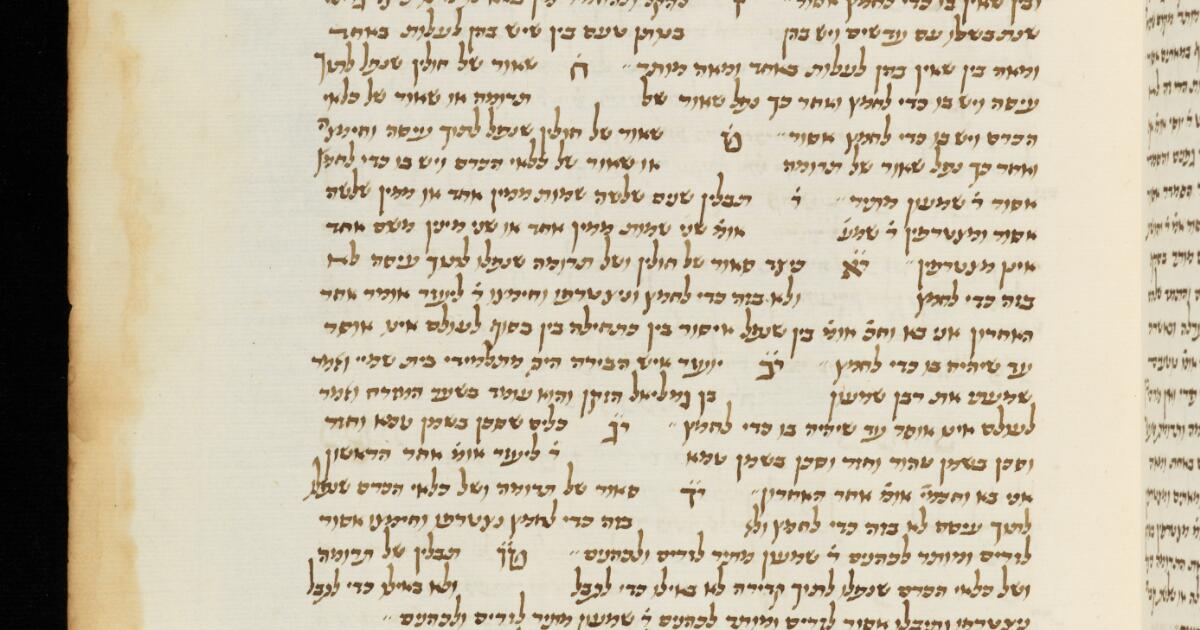 שנתבשלו עם עדשים ויש בהן בנותן טעם בין שיש בהן לעלות באחד
ומאה בין שאין בהן לעלות באחד ומאה מותר ׃ ח שאור של חולין שנפל לתוך
עיסה ויש בו כדי לחמץ ואחר כך נפל שאור של תרומה או שאור של כלאי
הכרם ויש בו כדי לחמץ אסור ׃ ט שאור של חולין שנפל לתוך עיסה וחימצה
ואחר כך נפל שאור של תרומה או שאור של כלאי הכרם ויש בו כדי לחמץ
אסור ר׳ שמעון מתיר ׃ י תבלין שנים שלשה שמות ממין אחד או ממין שלשה
אסור ומצטרפין ר׳ שמע׳ אומ׳ שני שמות ממין אחד או שני מינין משם אחד
אינן מצטרפין ׃ יא כיצד סאור של חולין ושל תרומה שנפלו לתוך עיסה לא
בזה כדי לחמץ ולא בזה כדי לחמץ וניצטרפו וחימצו ר׳ ליעזר אומר אחר
האחרון אני בא וחכ׳ אומ׳ בין שנפל איסור בין כתחילה בין בסוף לעולם אינו אוסר
עד שיהיה בו כדי לחמץ ׃ יב יועזר איש הבירה היה מתלמידי בית שמיי ואמר
שאלתי את רבן שמעון בן גמליאל הזקן והוא עומד בשער המזרח ואמר
לעולם אינו אוסר עד שיהיה בו כדי לחמץ ׃ יג כלים שסכן בשמן טמא וחזר
וסכן בשמן טהור וחזר וסכן בשמן טמא ר׳ ליעזר אומ׳ אחר הראשון
אני בא וחכמ׳ אומ׳ אחר האחרון ׃ יד סאור של תרומה ושל כלאי הכרם שנפל
לתוך עיסה לא בזה כדי לחמץ ולא בזה כדי לחמץ נצטרפו וחימצו אסור
לזרים ומותר לכהנים ר׳ שמעון מתיר לזרים ולכהנים ׃ טו תבלין של תרומה
ושל כלאי הכרם שנפלו לתוך קדירה לא באילו כדי לתבל ולא באילו כדי לתבל
נצטרפו ותיבלו אסור לזרים ומותר לכהנים ר׳ שמעון מתיר לזרים ולכהנים ׃